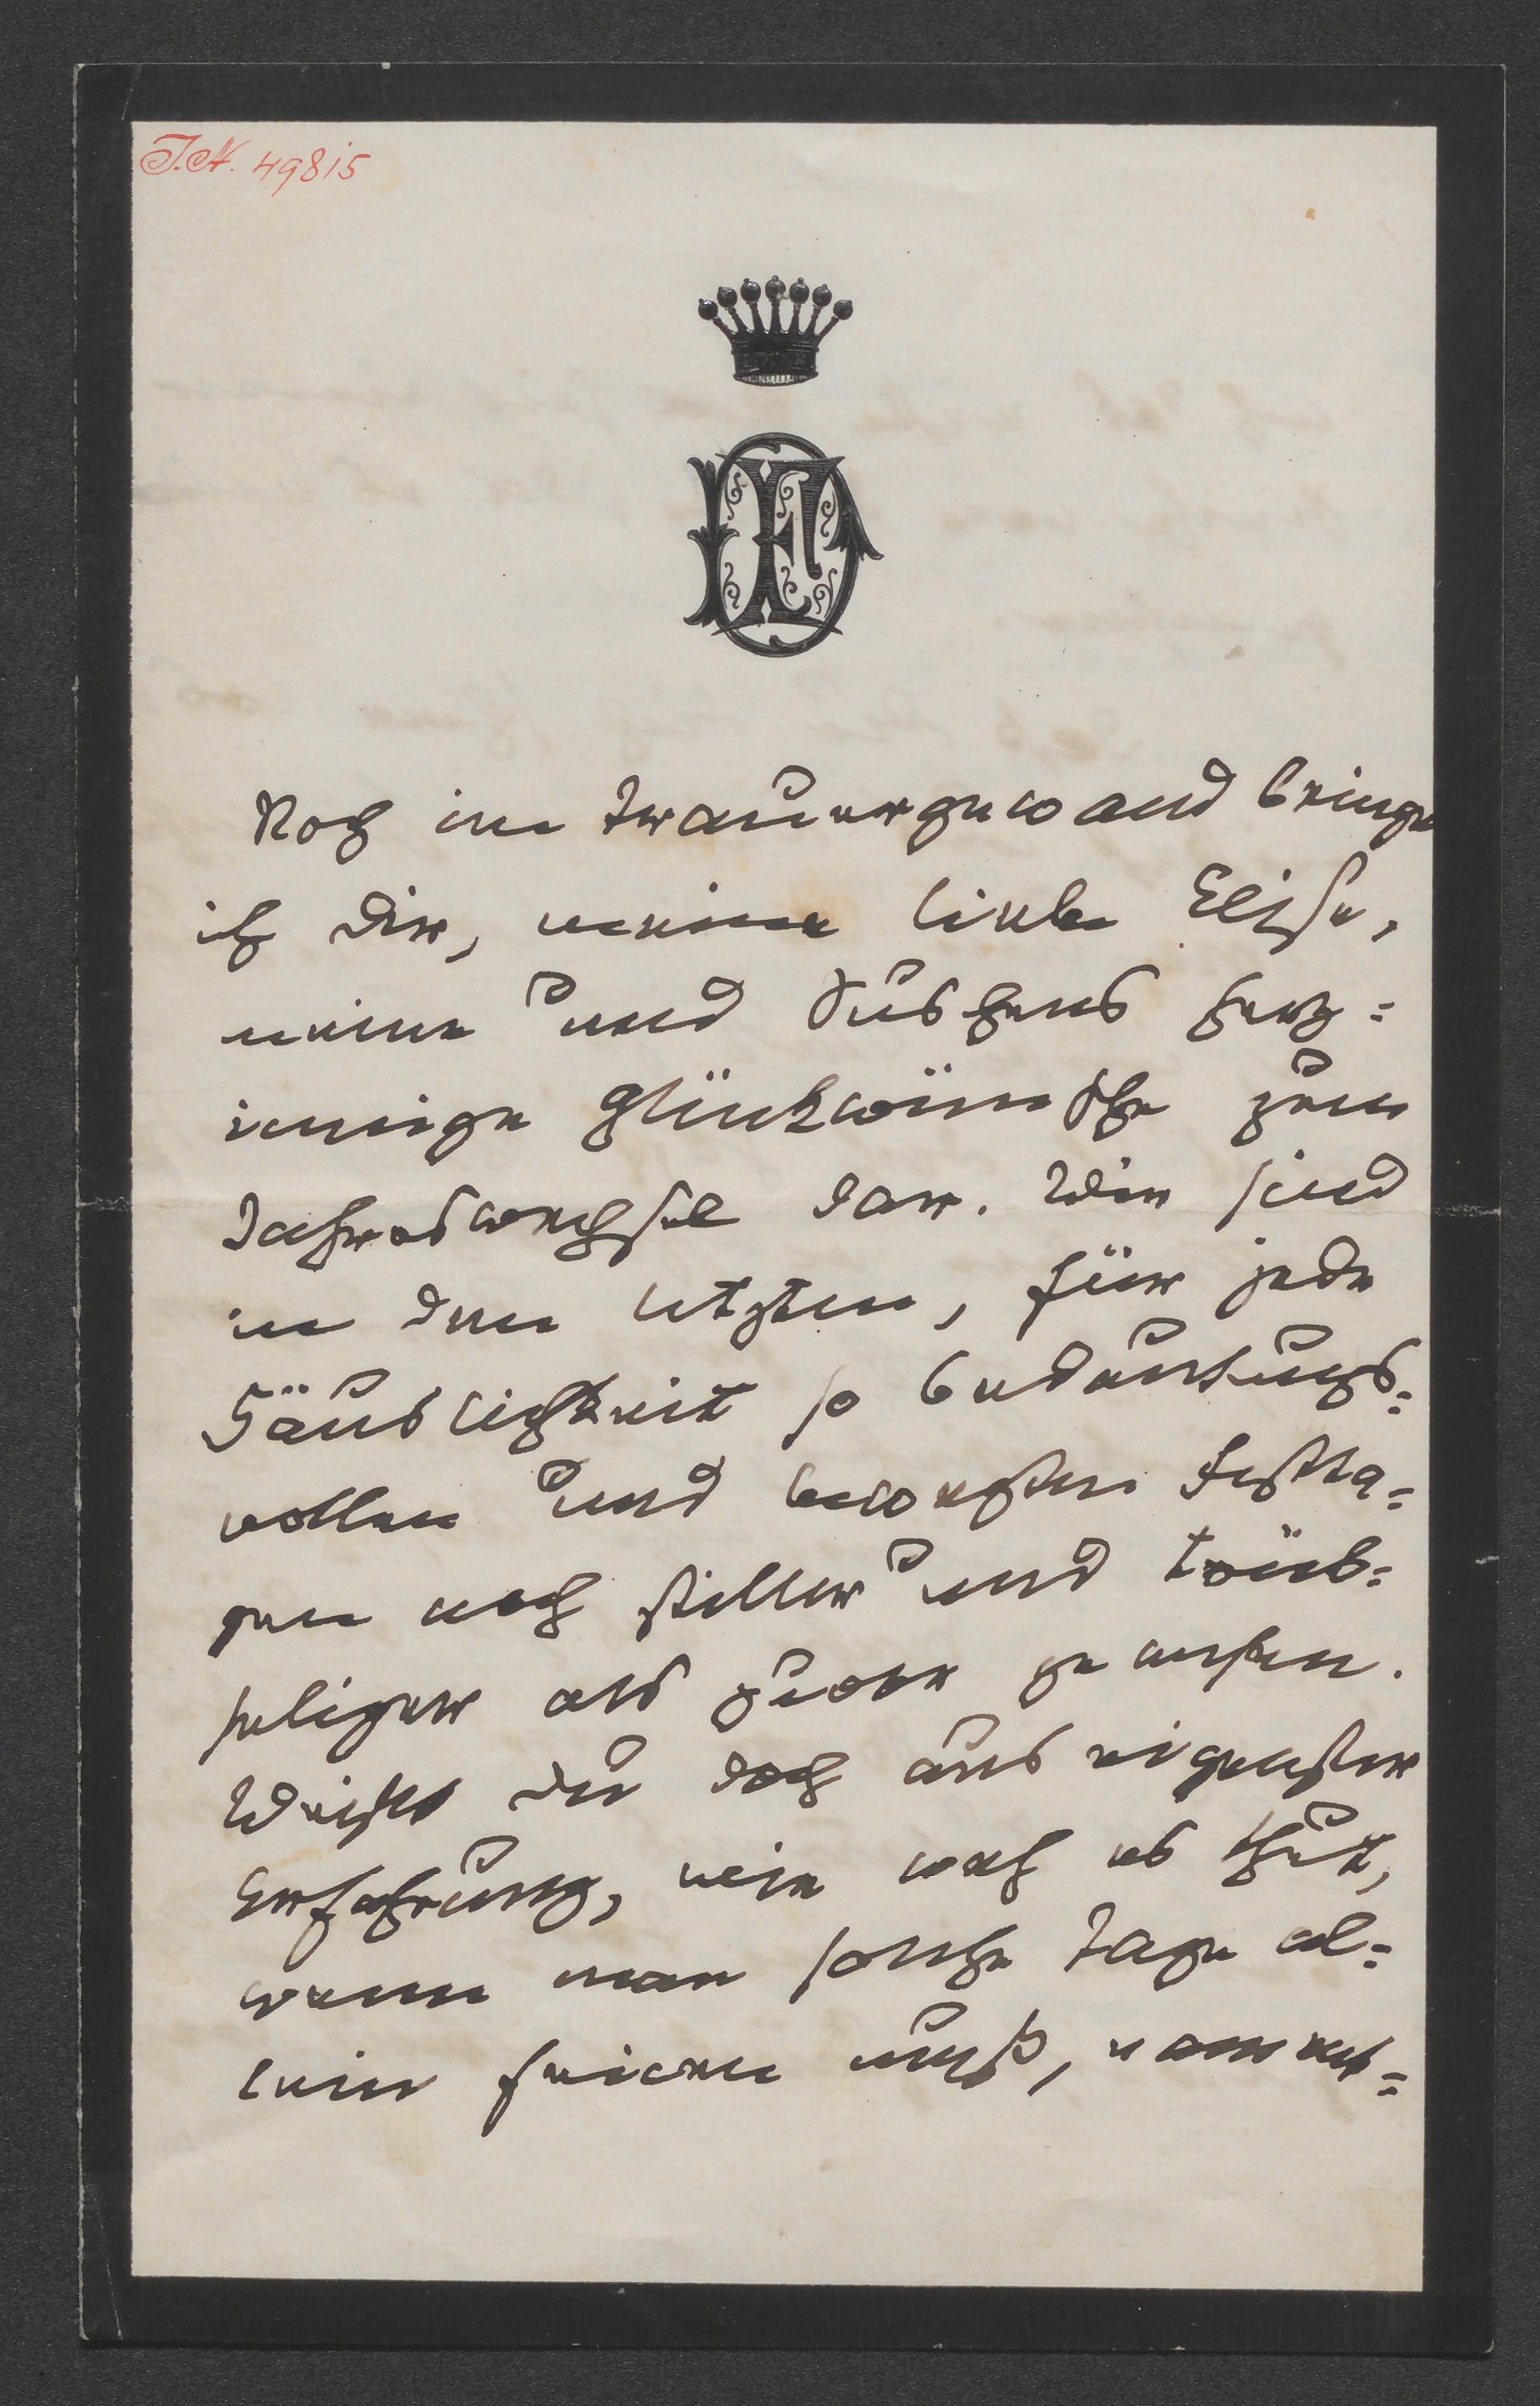 I.N. 49815
Noch im Trauergewand bringe
ich Dir, meine liebe Elise,
meine und Tuschens herz=
innige Glückwünsche zum
Jahreswechsel dar. Wir sind
in den letzten, für jede
Häuslichkeit so bedeutungs=
vollen und bewegten Festta=
gen noch stiller und trüb=
seliger als zuvor gewesen.
Weißt Du doch aus eigenster
Erfahrung, wie weh es thut,
wenn man solche Tage al=
lein feiern muß,